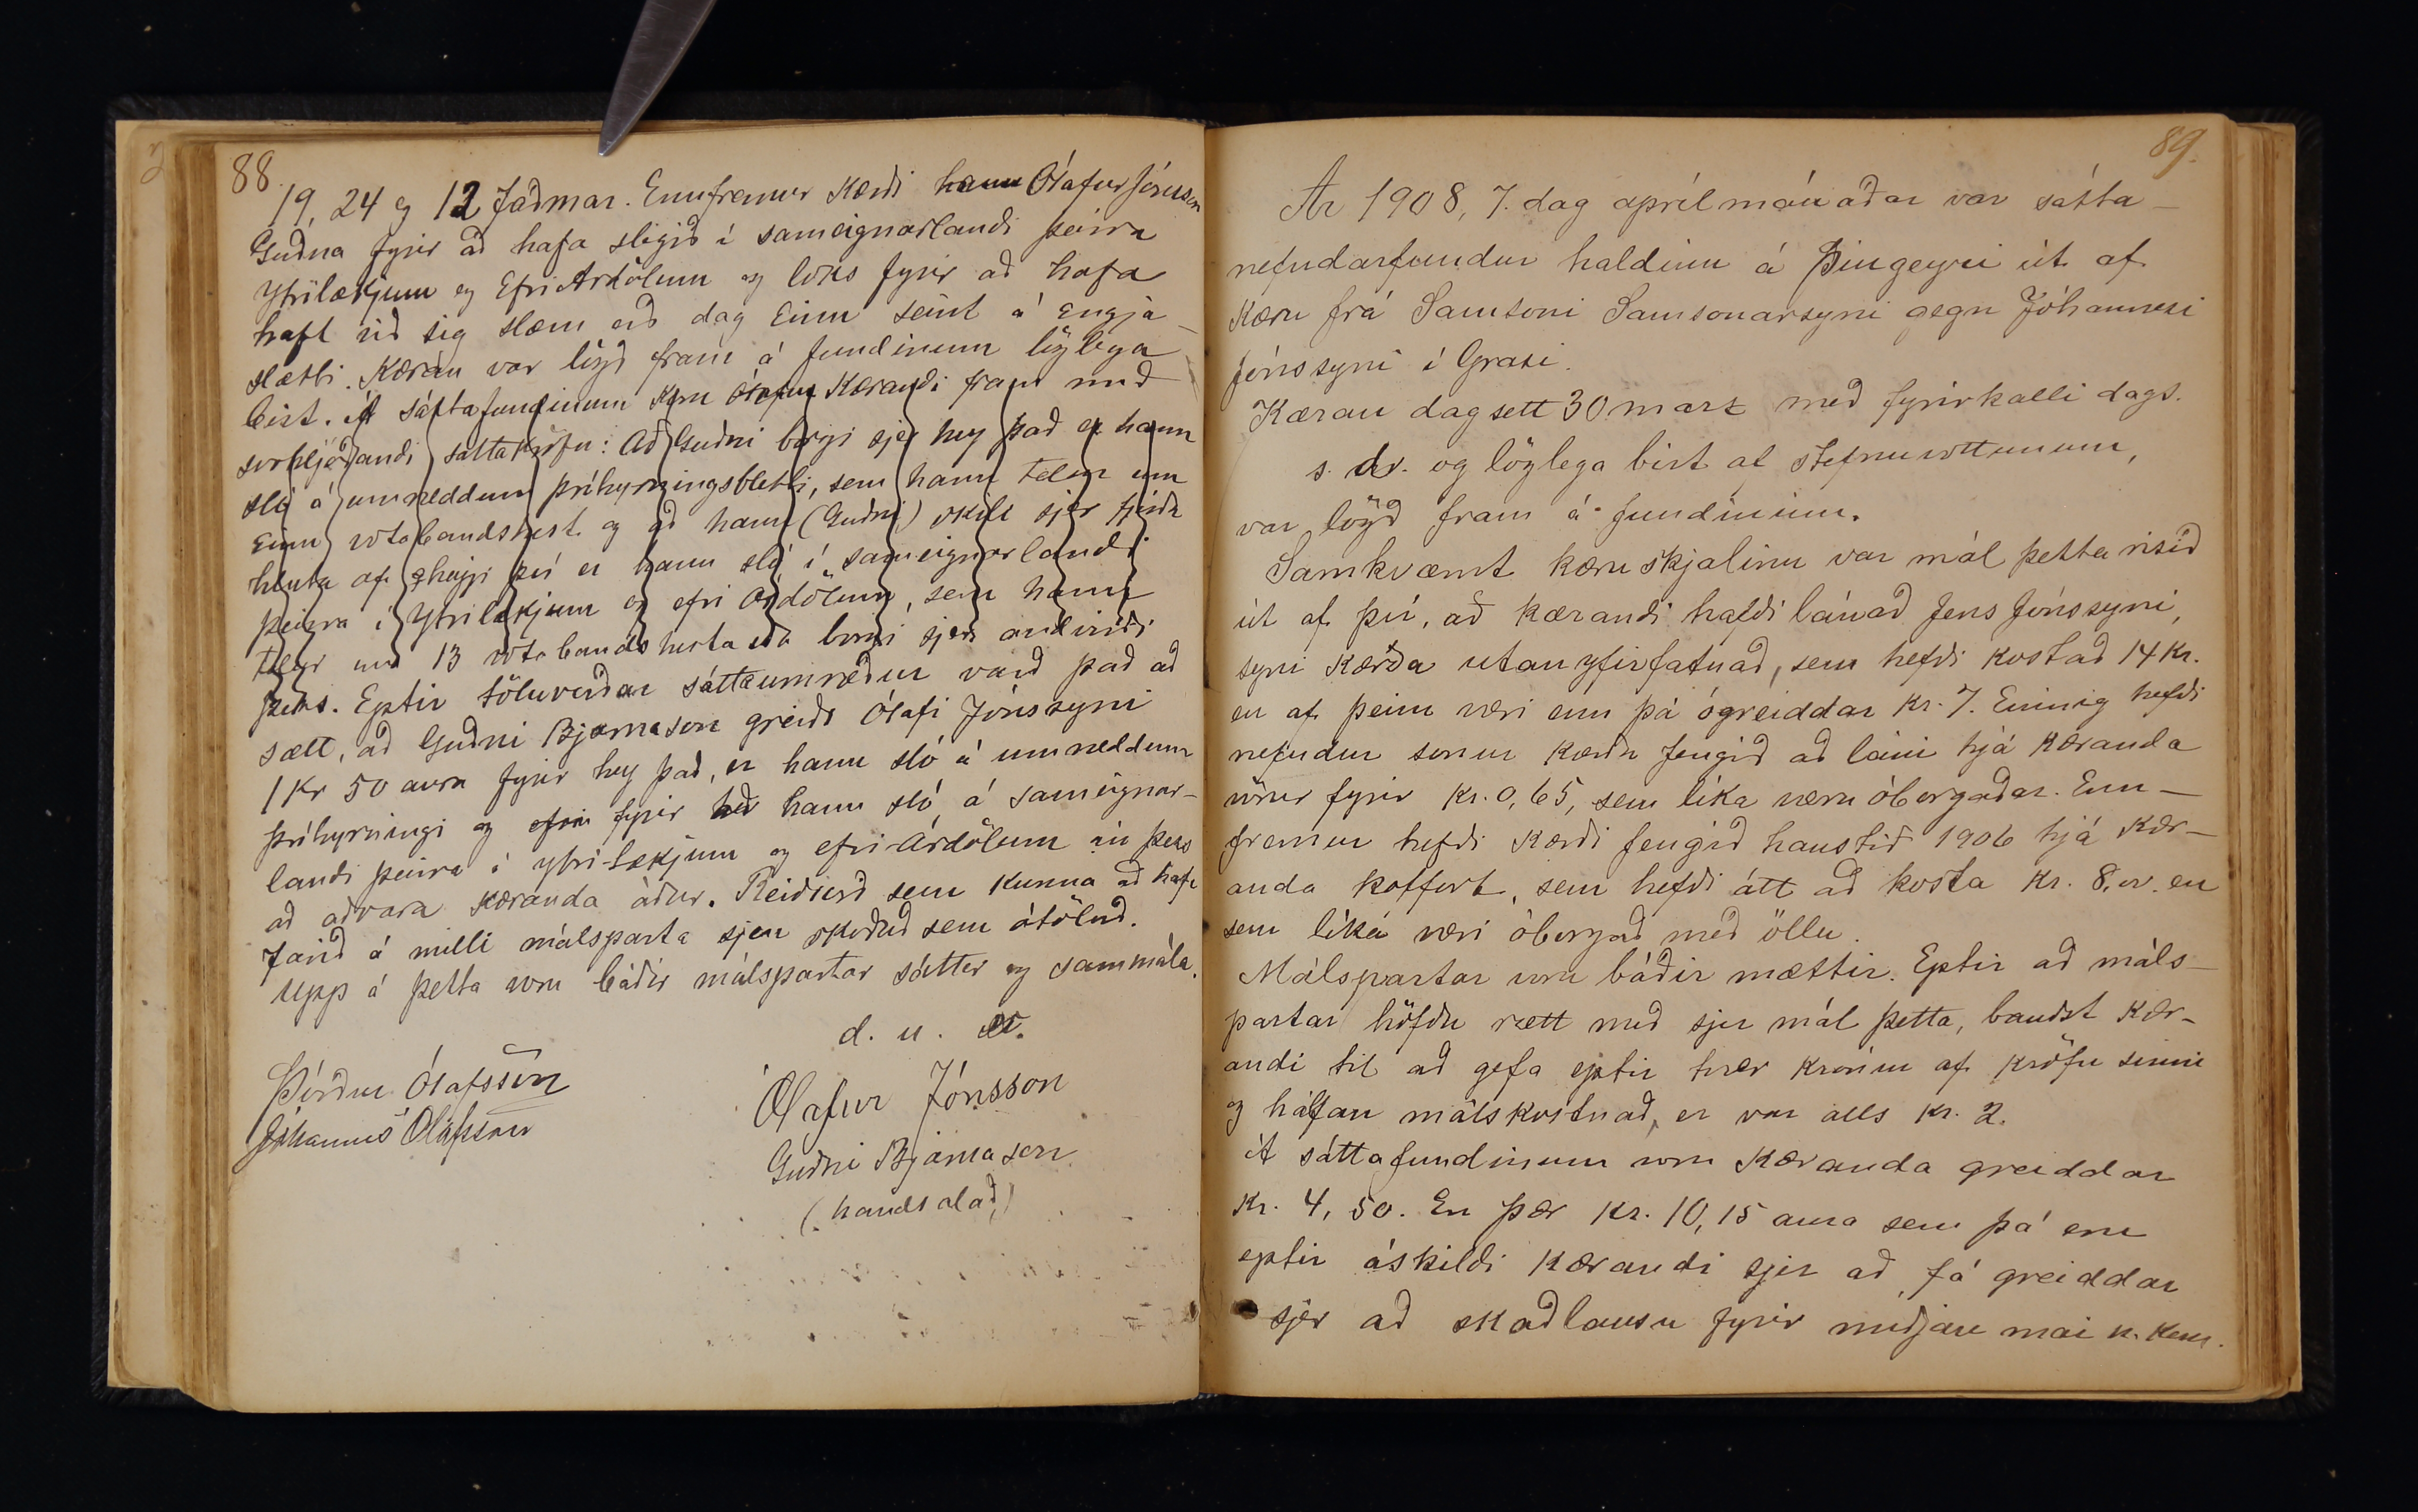 88
19, 24 og 12 faðmar. Ennfremur kærði hann Ólafur Jónsson
Guðna fyrir að hafa slegið í sameignarlandi þeirra
Ytrilækjum og Efri Ardölum og loks fyrir að hafa
haft við sig slæm orð dag einn seint á engja-
slætti. Kæran var lögð fram á fundinum löglega
birt. Á sáttafundinum kom Ólafur kærandi fram með
svohljóðandi sáttakröfu: Að Guðni borgi sjer hey það er hann
sló á umræddum þríhyrningsbletti, sem hann telur um
einn votabandshest og að hann (Guðni) skili sjer
hluta af heyji því er hann sló í sameignarlandi
þeirra í Ytrilækjum og efri Árdölum, sem hann
telur um 13 votabandshesta eða borgi sjer andvirði
þess. Eptir töluverðar sáttaumræður varð það að
sætt, að Guðni Bjarnason greiði Ólafi Jónssyni
1 Kr 50 aura fyrir hey það, er hann sló á umræddum
þríhyrningi og fyrir það hann sló á sameignar-
landi þeirra í ytri-Lækjum og efri-Árdölum án þess
að aðvara kæranda áður. Reiðiorð sem kunna að hafa
farið á milli málsparta sjeu skoðuð sem ótöluð.
Upp á þetta voru báðir málspartar sáttir og sammála.
d. u. s.
Þórður Ólafsson
Ólafur Jónsson
Jóhannes Ólafsson
Guðni Bjarnason
(handsalað)
89.
Ár 1908, 7. dag aprílmánaðar var sátta-
nefndarfundur haldinn á Þingeyri út af
kæru frá Samsoni Samsonarsyni gegn Jóhannesi
Jónssyni í Grasi.
Kæran dagsett 30 marz með fyrirkalli dags.
s. d. og löglega birt af stefnuvottunum,
var lögð fram á fundinum.
Samkvæmt kæruskjalinu var mál þetta risið
út af því, að kærandi hafði lánað Jens Jónssyni,
syni kærða utanyfirfatnað, sem hefði kostað 14 kr.
en af þeim væri enn þá ógreiddar kr. 7. Einnig hefði
nefndur sonur kærða fengið að láni hjá kæranda
vörur fyrir kr. 0,65, sem líka væru óborgaðar. Enn-
fremur hefði kærði fengið haustið 1906 hjá kær-
anda koffort, sem hefði átt að kosta kr. 8,00. en
sem líka væri óborgað með öllu.
Málspartar voru báðir mættir. Eptir að máls-
partar höfðu rætt með sjer mál þetta, bauðst kær-
andi til að gefa eptir tvær krónur af kröfu sinni
og hálfan málskostnað, er var alls kr. 2.
Á sáttafundinum voru kæranda greiddar
kr. 4,50. En þær kr. 10,15 aura sem þá eru
eptir áskildi kærandi sjer að fá greiddar
sjer að skaðlausu fyrir miðjan mai n. kem.